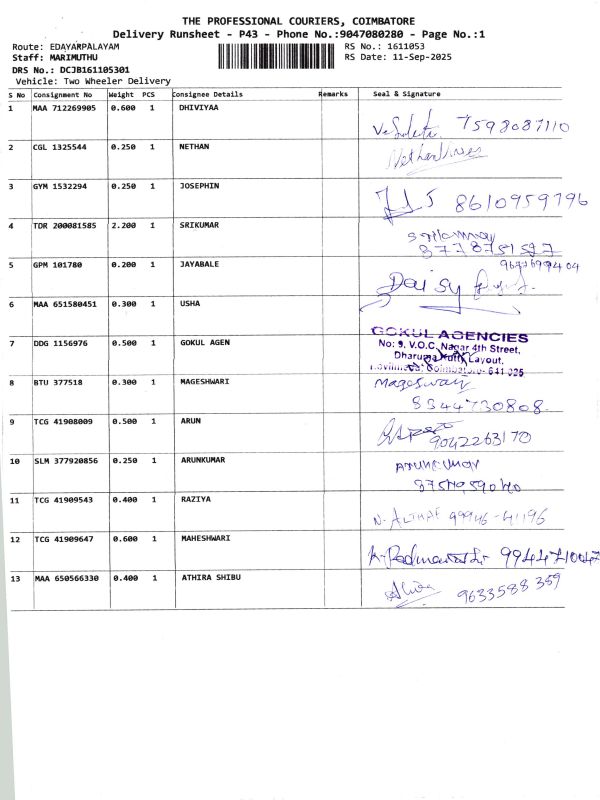 THE PROFESSIONAL COURIERS, COIMBATORE
Delivery Runsheet - P43 - Phone No.:9047080280 - Page No.:1
Route: EDAYARPALAYAM RS No.: 1611053
Staff: MARIMUTHU RS Date: 11-Sep-2025
DRS No.: DCJB161105301
Vehicle: Two Wheeler Delivery
S No Consignment No Weight PCS Consignee Details Remarks Seal & Signature
1 MAA 712269905 0.600 1 DHIVIYAA
7598087110
2 CGL 1325544 0.250 1 NETHAN
3 GYM 1532294 0.250 1 JOSEPHIN
8610959796
4 TDR 200081585 2.200 1 SRIKUMAR
5 GPM 101780 0.200 1 JAYABALE
Daisy
6 MAA 651580451 0.300 1 USHA
7 DDG 1156976 0.500 1 GOKUL AGEN
GOKUL AGENCIES
No: 9, V.O.C. Nagar 4th Street,
Layout,
8 BTU 377518 0.300 1 MAGESHWARI
Mageswari
8344730808.
9 TCG 41908009 0.500 1 ARUN
9042263170
10 SLM 377920856 0.250 1 ARUNKUMAR
ARUNKUMAR
11 TCG 41909543 0.400 1 RAZIYA
N. ALTHAF 99946-41196
12 TCG 41909647 0.600 1 MAHESHWARI
9944710047
13 MAA 650566330 0.400 1 ATHIRA SHIBU
9633588359